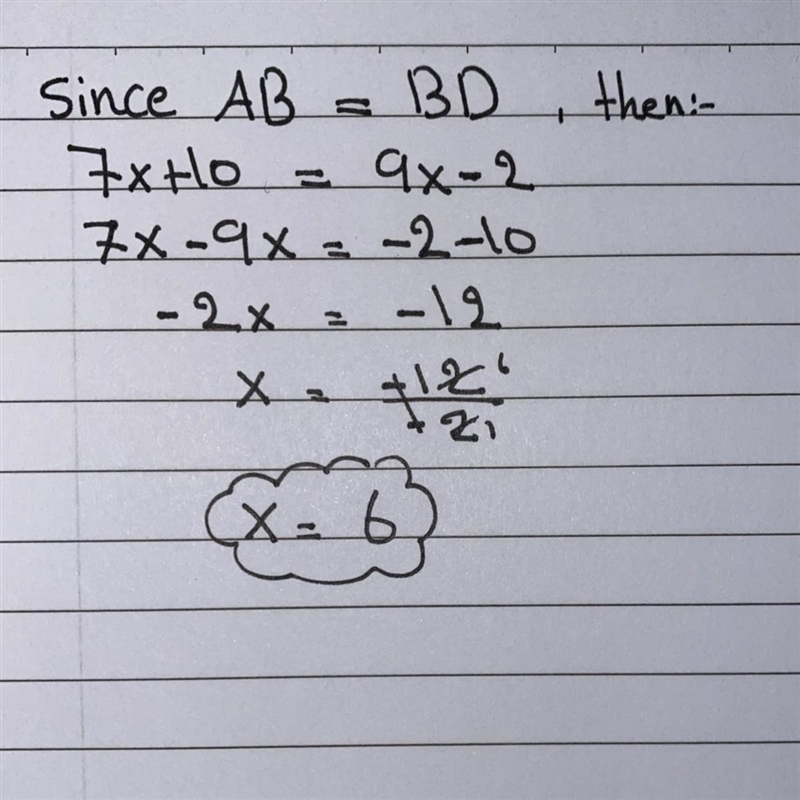 Since AB = BD , then:-
7x+10 = 9x-2
7x-9x = -2-10
-2x = -12
x = -12 6
-2 1
x = 6